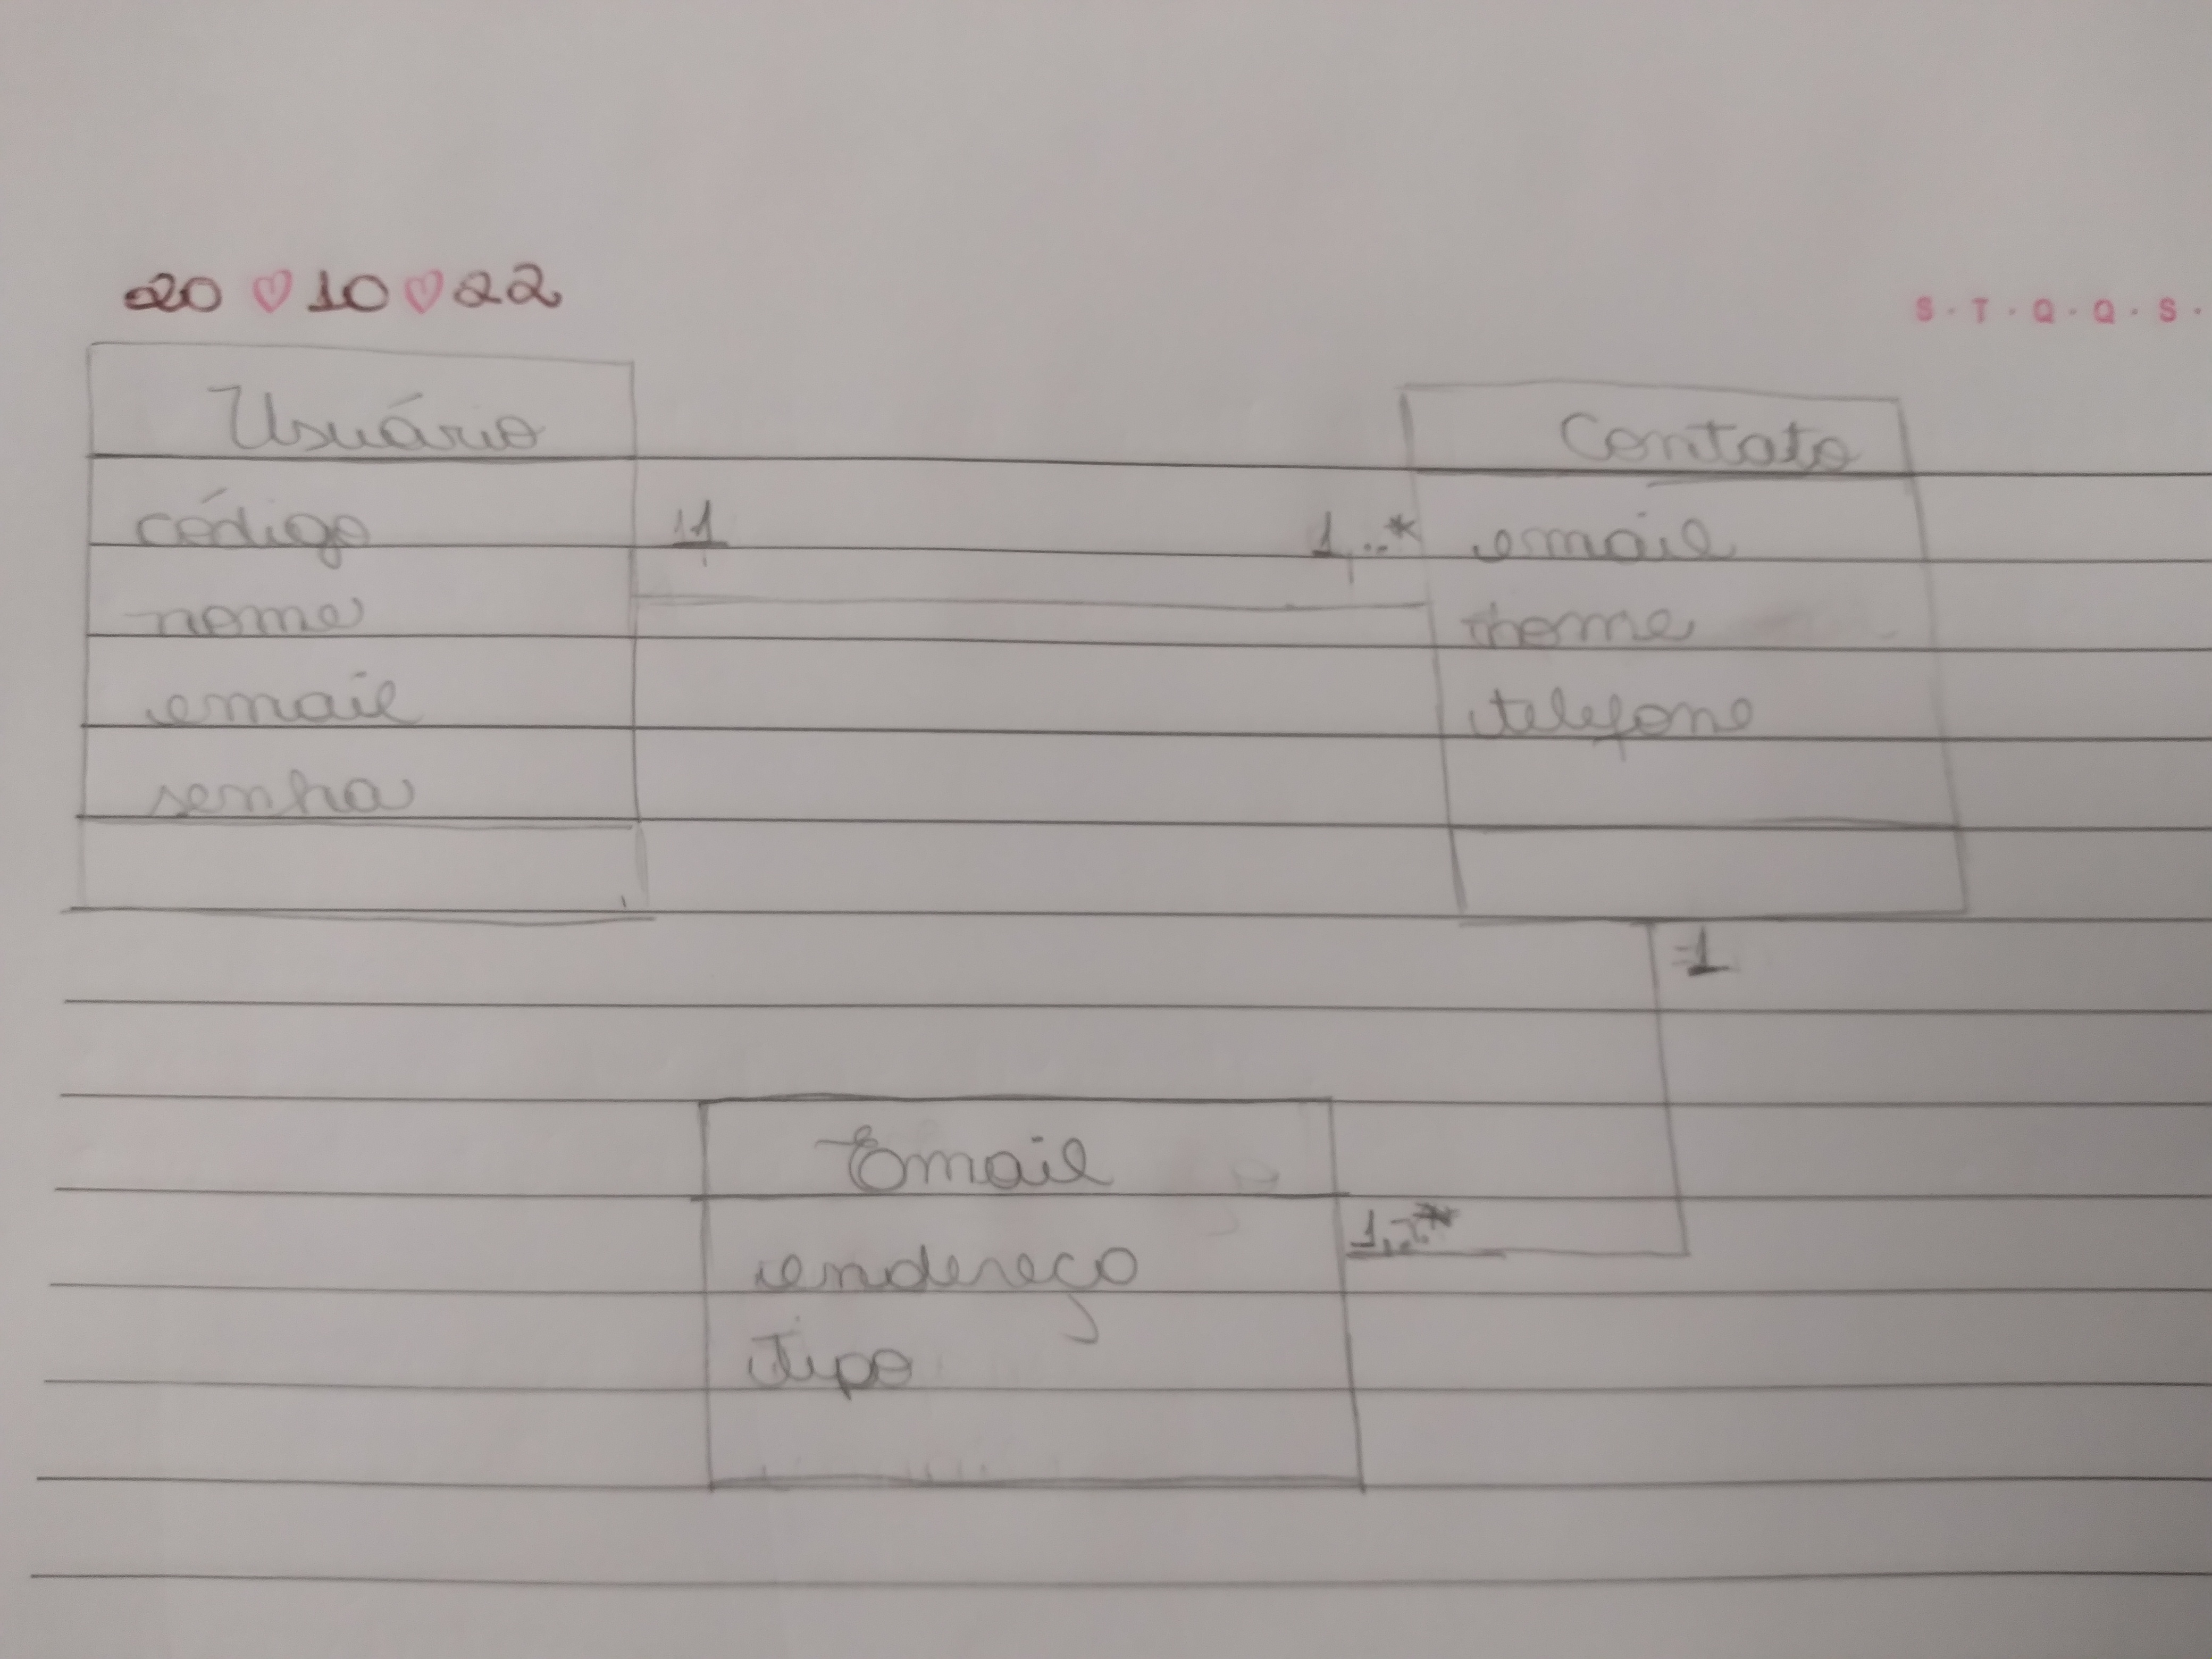 20 ♡ 10 ♡ 22
S · T · Q · Q · S ·
Usuário
código
nome
email
senha
1
1..*
Contato
email
nome
telefone
1
Email
endereço
tipo
1..*